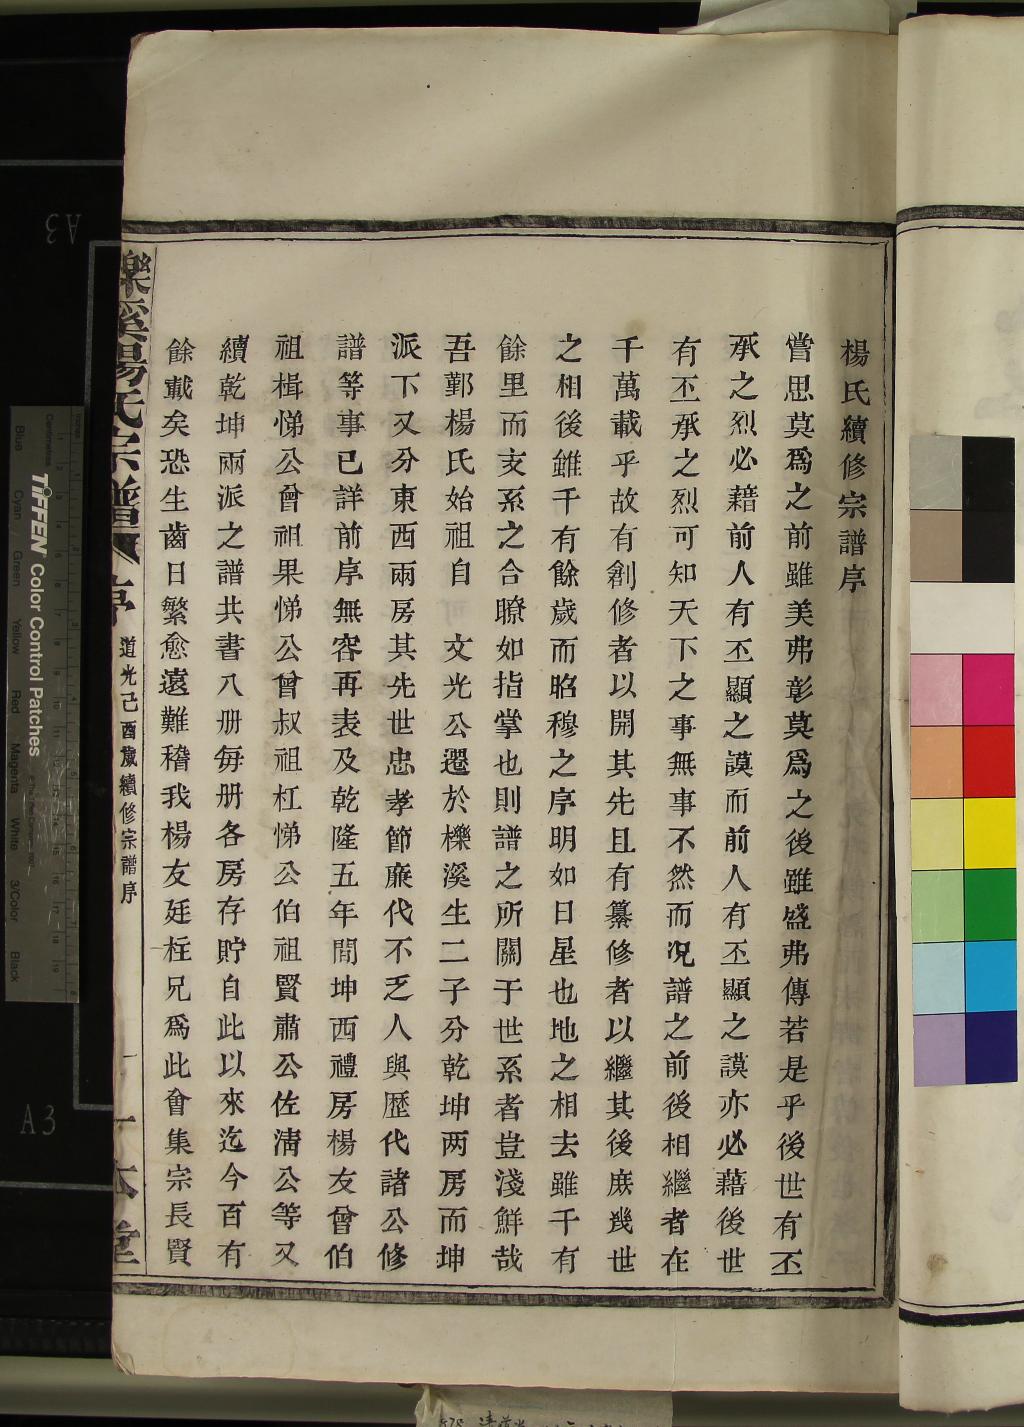 楊氏續修宗譜序
嘗思莫爲之前雖美弗彰莫爲之後雖盛弗傳若是乎後世有丕
承之烈必藉前人有丕顯之謨而前人有丕顯之謨亦必藉後世
有丕承之烈可知天下之事無事不然而况譜之前後相繼者在
千萬載乎故有創修者以開其先且有纂修者以繼其後庶幾世
之相後雖千有餘歲而昭穆之序明如日星也地之相去雖千有
餘里而支系之合瞭如指掌也則譜之所關于世系者豈淺鮮哉
吾鄞楊氏始祖自 文光公遷於櫟溪生二子分乾坤两房而坤
派下又分東西兩房其先世忠孝節廉代不乏人與歷代諸公修
譜等事已詳前序無容再表及乾隆五年間坤西禮房楊友曾伯
祖楫悌公曾祖果悌公曾叔祖杠悌公伯祖賢肅公佐淸公等又
續乾坤兩派之譜共書八册每册各房存貯自此以來迄今百有
餘載矣恐生齒日繁愈遠難稽我楊友廷柱兄爲此會集宗長賢
櫟溪楊氏宗譜 序 道光己酉歲續修宗譜序 一 一本堂
A3
A3
TIFFEN Color Control Patches
Inches
Centimetres
Blue Cyan Green Yellow Red Magenta White 3/Color Black